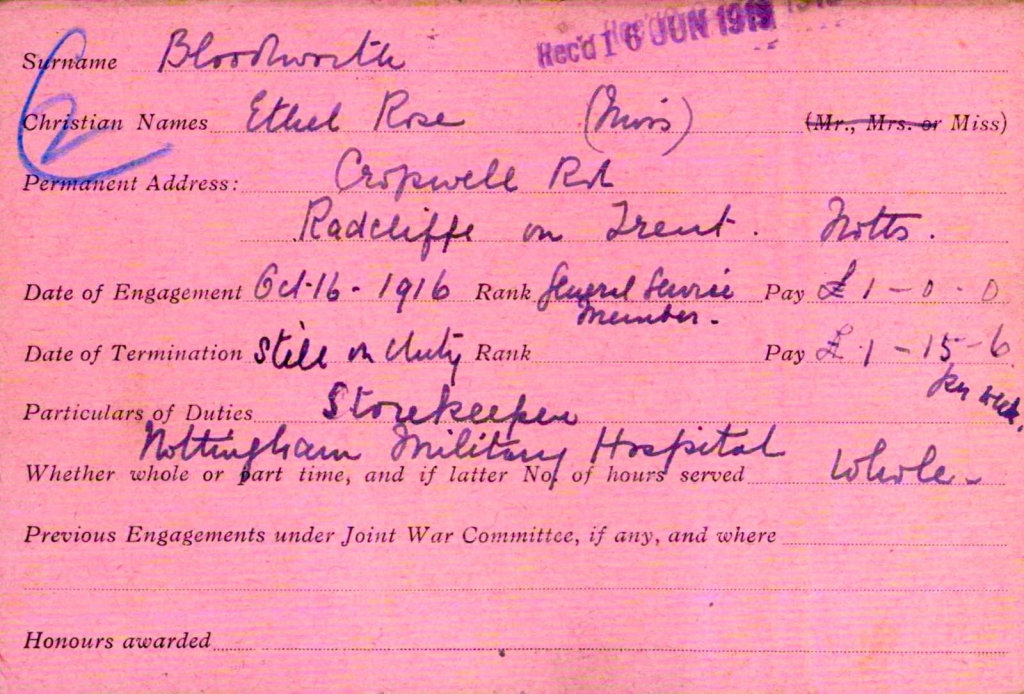 Rec'd 16 JUN 1919
Surname Bloodworth
Christian Names Ethel Rose (Miss) (Mr., Mrs. or Miss)
Permanent Address: Cropwell Rd
Radcliffe on Trent. Notts.
Date of Engagement Oct-16-1916 Rank General Service Pay £1-0-0
Member.
Date of Termination Still on duty Rank Pay £1-15-6
per week.
Particulars of Duties Storekeeper
Nottingham Military Hospital
Whether whole or part time, and if latter No. of hours served Whole-
Previous Engagements under Joint War Committee, if any, and where
Honours awarded